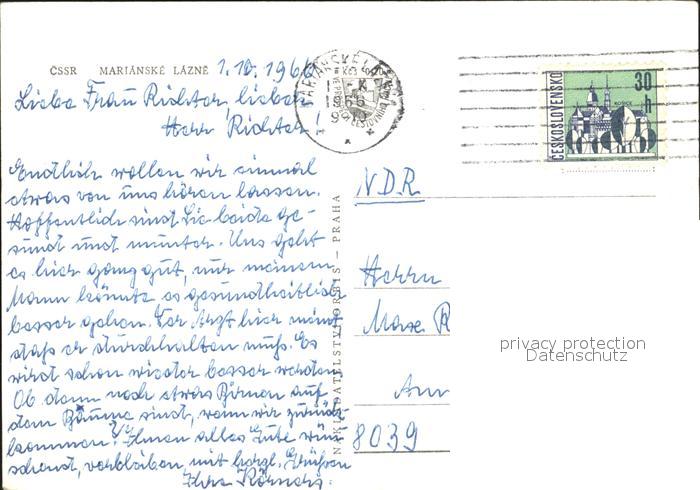 ČSSR MARIÁNSKÉ LÁZNĚ 1.10.1966
Liebe Frau Richter, lieber
Herr Richter!
Endlich wollen wir einmal
etwas von uns hören lassen.
Hoffentlich sind Sie beide ge-
sund und munter. Uns geht
es hier ganz gut, nur meinem
Mann könnte es gesundheitlich
besser gehen. Der Arzt hier meint
daß er durchhalten muß. Es
wird schon wieder besser werden.
Ob dann noch etwas Birnen auf
dem Bäume sind, wenn wir zurück-
kommen? Ihnen alles Gute wün-
schend, verbleiben mit herzl. Grüßen
Ihre
NAKLADATELSTVÍ ORBIS - PRAHA
MARIÁNSKÉ LÁZNĚ
ČESKOSLOVENSKO
30 h
KOŠICE
N.D.R.
Herrn
Max R
Am
8039
privacy protection
Datenschutz